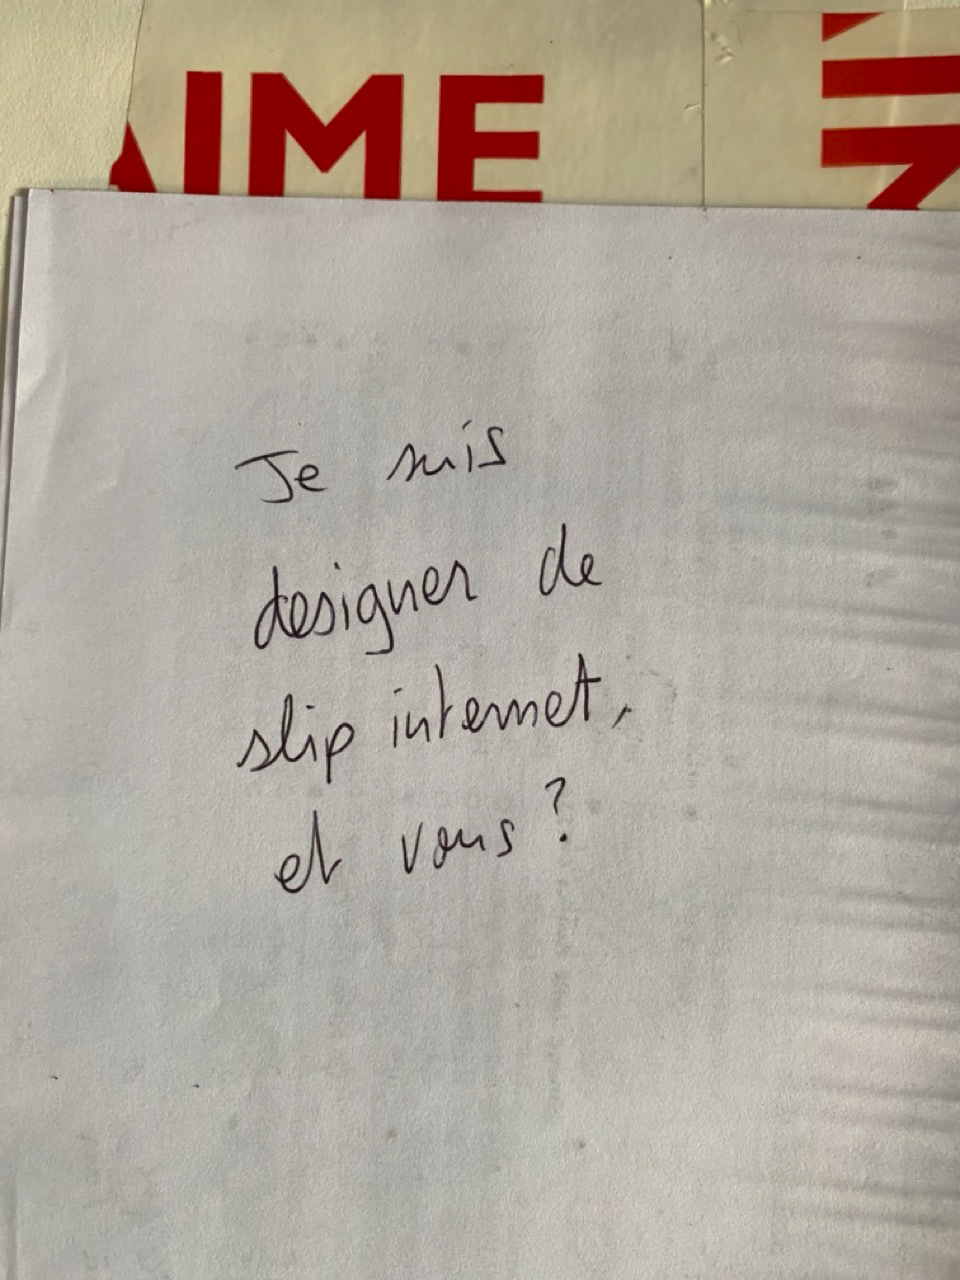 AIME
Je suis
designer de
slip internet,
et vous ?